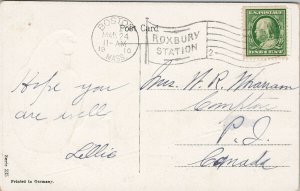 BOSTON
MAR 24
11-AM
19 10
MASS.
Post Card
ROXBURY
STATION
2
ONE CENT
Hope you
are well
Lillie
Mrs. W. R.
P. I.
Canada
Serie 225
Printed in Germany.